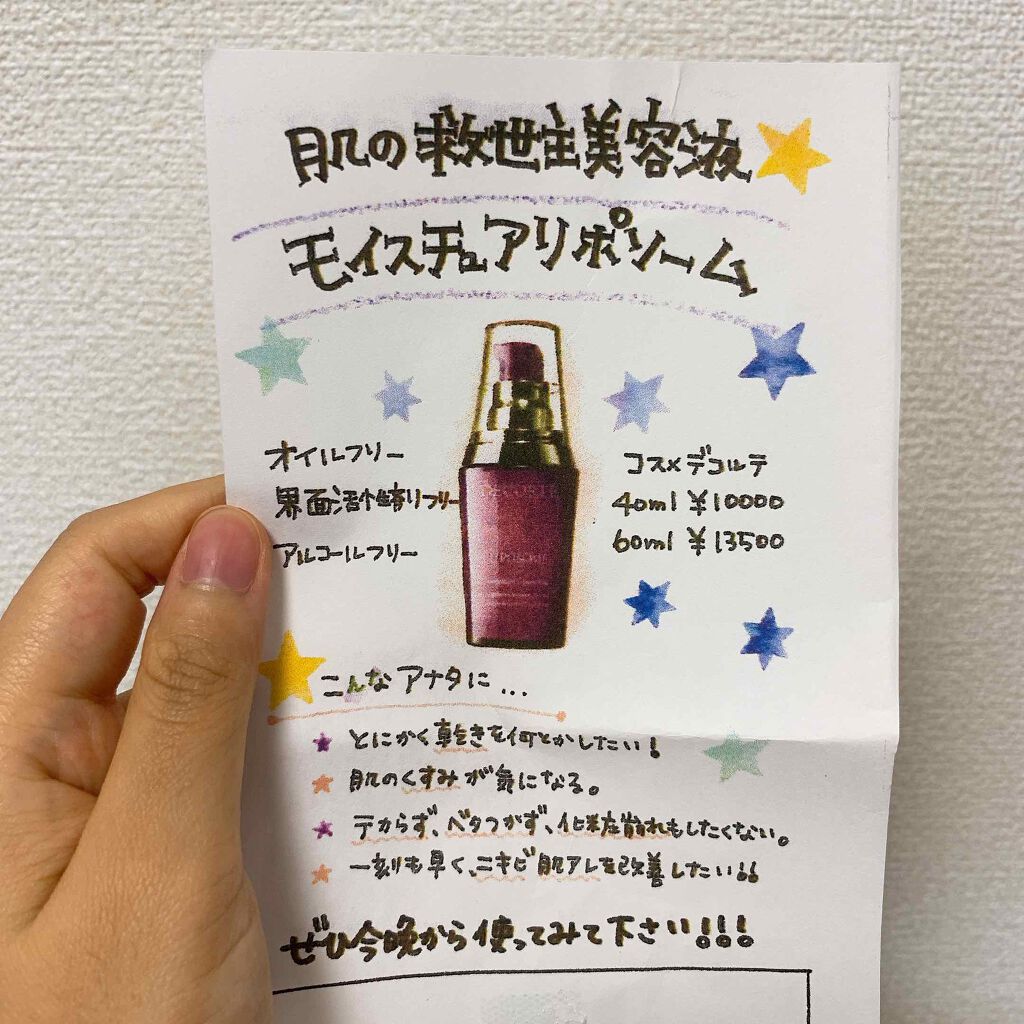 肌の救世主美容液
モイスチュアリポソーム
オイルフリー
界面活性剤フリー
アルコールフリー
コスメデコルテ
40ml ¥10000
60ml ¥13500
こんなアナタに...
とにかく乾きを何とかしたい!
肌のくすみが気になる。
テカらず、ベタつかず、化粧崩れもしたくない。
一刻も早く、ニキビ肌アレを改善したい!!
ぜひ今晩から使ってみて下さい!!!